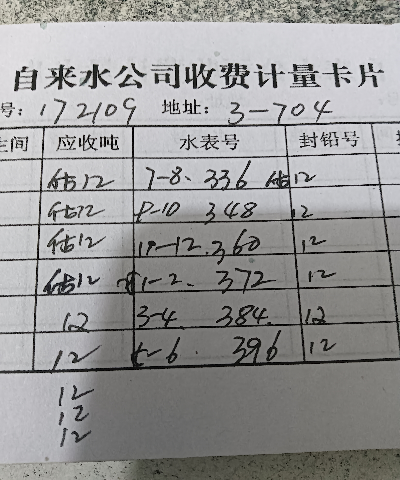 自来水公司收费计量卡片
号: 172109 地址: 3-704
间 应收吨 水表号 封铅号
估12 7-8. 336 估12
估12 9-10 348 12
估12 11-12. 360 12
估12 1-2. 372 12
12 3-4. 384. 12
12 5-6. 396 12
12
12
12